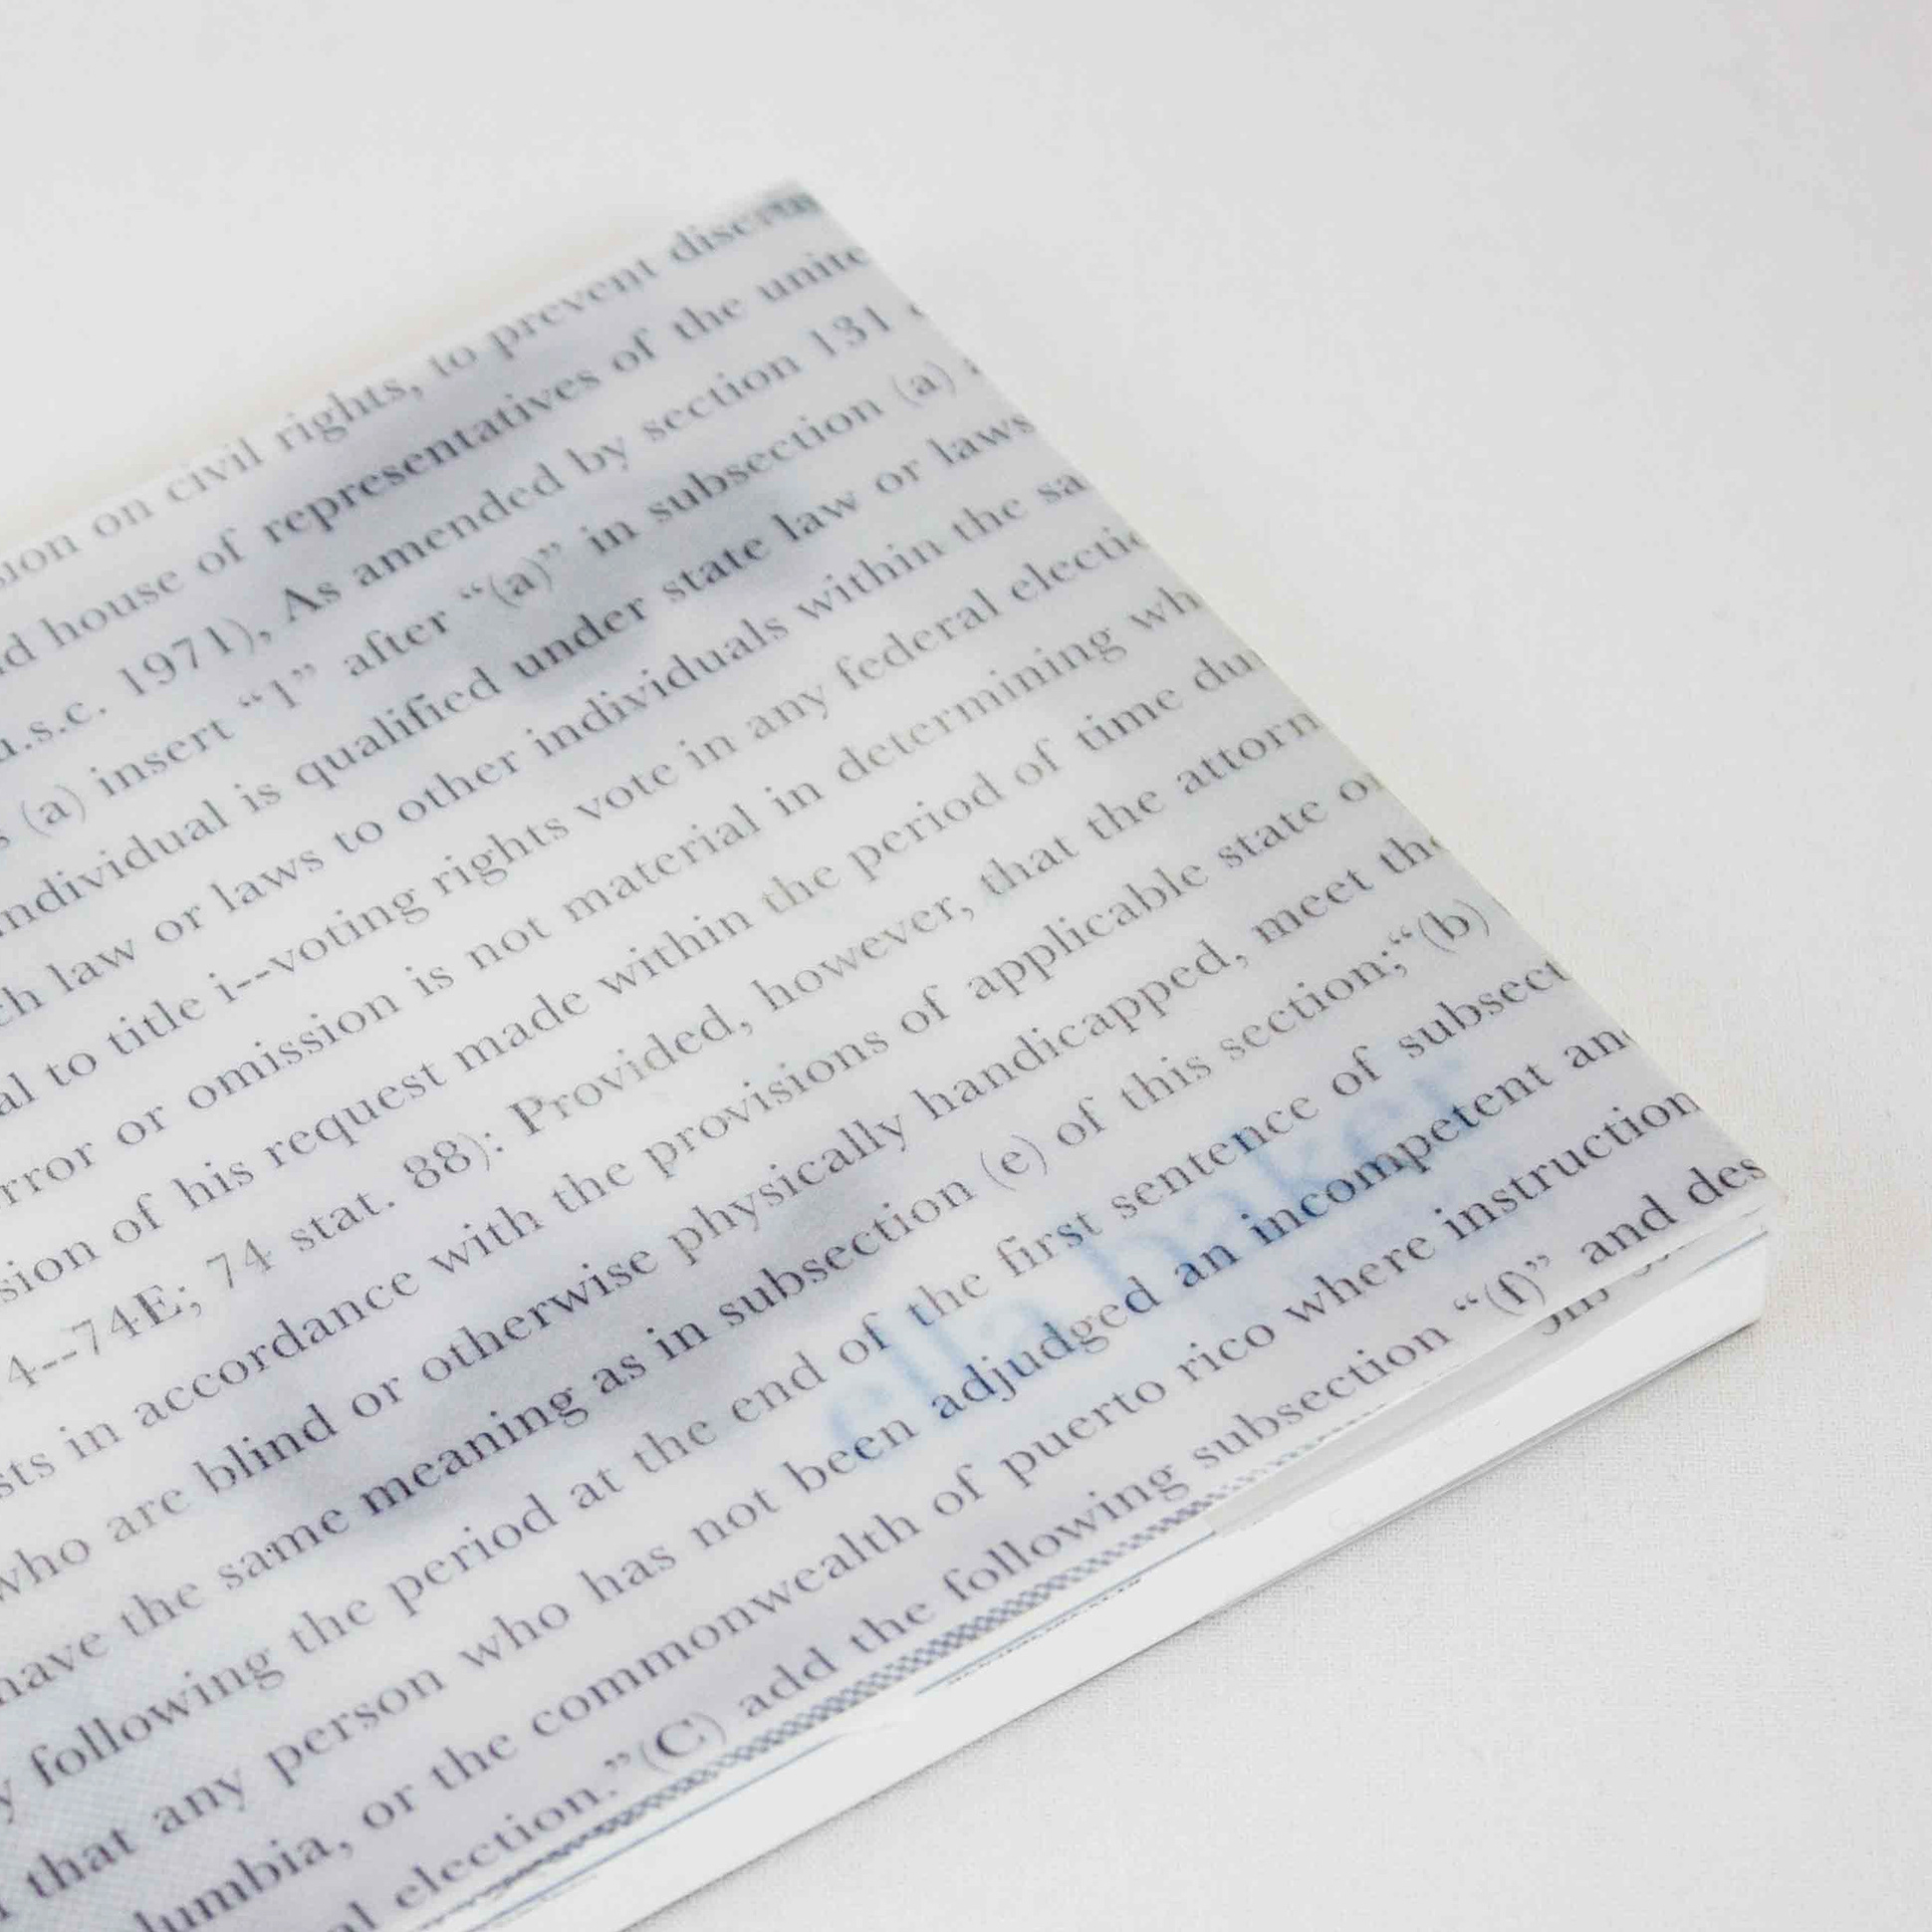 on civil rights, to prevent discrim
house of representatives of the unite
u.s.c. 1971), As amended by section 131
(a) insert “1” after “(a)” in subsection (a)
individual is qualified under state law or laws
ch law or laws to other individuals within the sa
al to title i--voting rights vote in any federal electio
rror or omission is not material in determining wh
sion of his request made within the period of time du
4--74E; 74 stat. 88): Provided, however, that the attorn
sts in accordance with the provisions of applicable state or
who are blind or otherwise physically handicapped, meet the
have the same meaning as in subsection (e) of this section;“(b)
y following the period at the end of the first sentence of subsect
that any person who has not been adjudged an incompetent and
lumbia, or the commonwealth of puerto rico where instruction
al election.”(C) add the following subsection “(f)” and des
ella baker